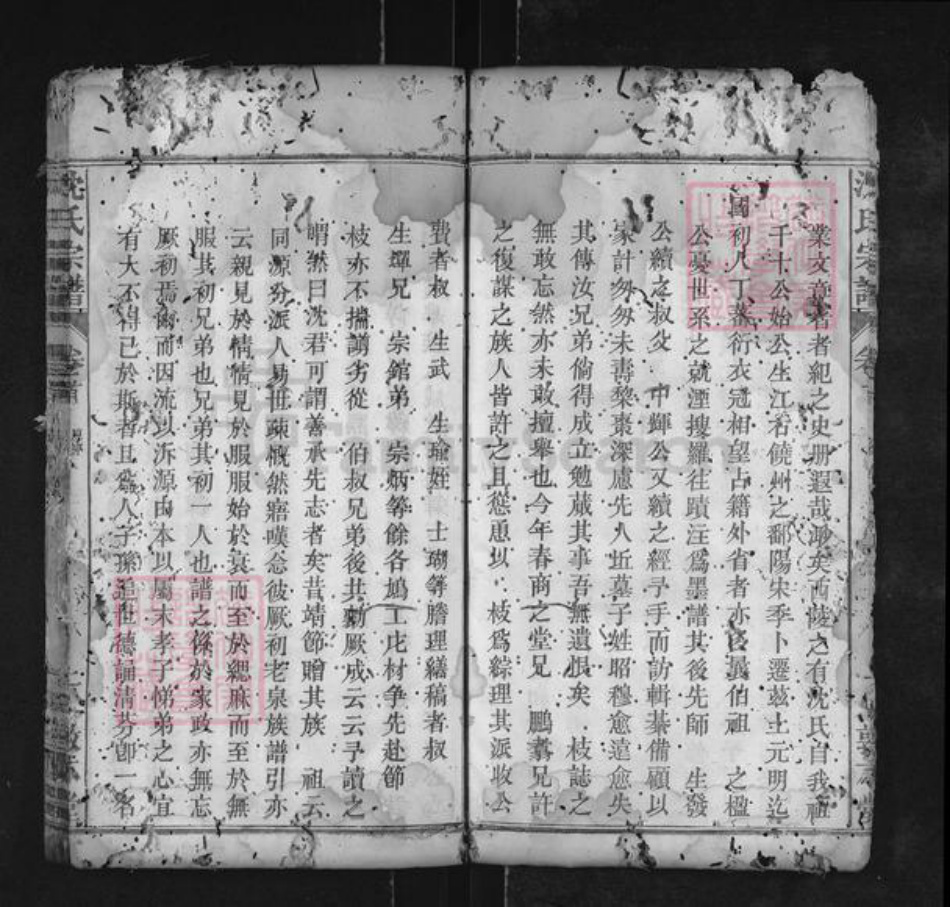 沈氏宗譜
卷首
業文章著者紀之史册遐哉邈矣西陵之有沈氏自我祖
千十公始公生江右饒州之鄱陽宋季卜遷茲土元明迄
國初人丁蕃衍衣冠相望占籍外省者亦 伯祖 之楹
公憂世系之就湮搜羅往蹟注爲墨譜其後先師 生發
公續之叔父 中輝公又續之經予手而訪輯綦備顧以
家計匆匆未壽棃棗深慮先人坵墓子姓昭穆愈遠愈失
其傳汝兄弟倘得成立勉蕆其事吾無遺恨矣 枝誌之
無敢忘然亦未敢擅舉也今年春商之堂兄 鵬翥兄許
之復謀之族人皆許之且慫恿以 枝爲綜理其派收公
費者叔 生武 生瑜姪 士瑚等膽理繕稿者叔
生煇兄 宗館弟 宗炳等餘各鳩工庀材爭先赴節
枝亦不揣謭劣從 伯叔兄弟後共勷厥成云云予讀之
喟然曰沈君可謂善承先志者矣昔靖節贈其族 祖云
同源分派人易世疎慨然寤嘆念彼厥初老泉族譜引亦
云親見於情情見於服服始於衰而至於緦麻而至於無
服其初兄弟也兄弟其初一人也譜之係於家政亦無忘
厥初焉爾而因流以泝源由本以屬末孝子悌弟之心宜
有大不得已於斯者且爲人子孫追世德誦清芬卽一名
沈氏宗譜
卷首
FamilySearch